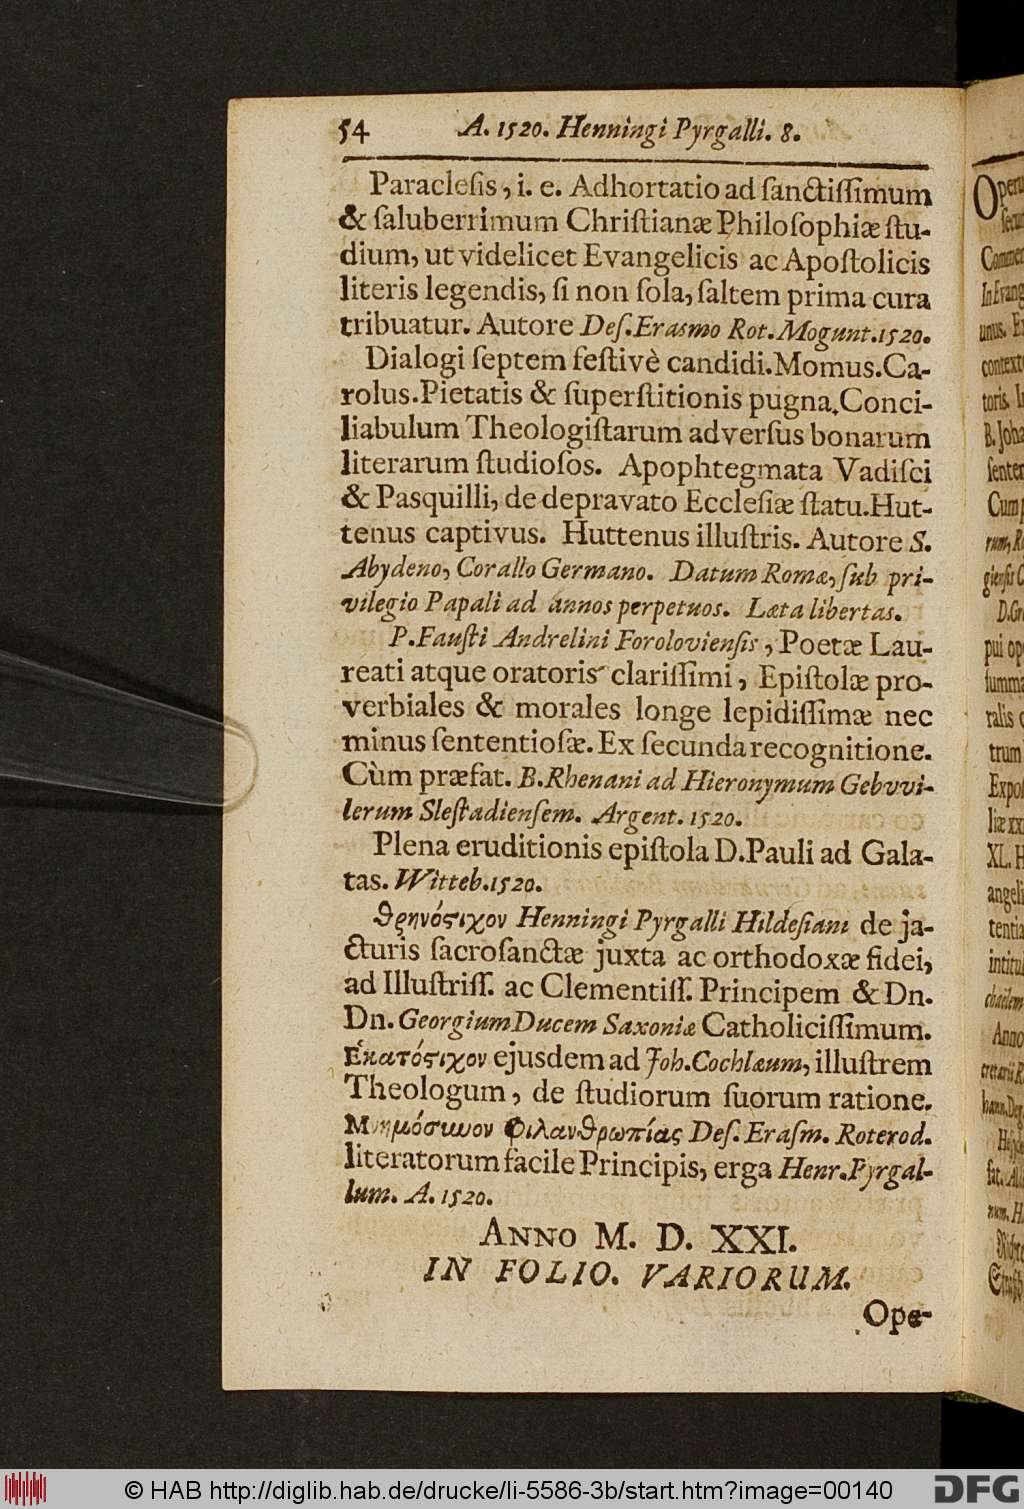 54 A. 1520. Henningi Pyrgalli. 8.
Paracleſis, i. e. Adhortatio ad ſanctiſſimum
& ſaluberrimum Chriſtianæ Philoſophiæ ſtu-
dium, ut videlicet Evangelicis ac Apoſtolicis
literis legendis, ſi non ſola, ſaltem prima cura
tribuatur. Autore Deſ. Eraſmo Rot. Mogunt. 1520.
Dialogi ſeptem feſtivè candidi. Momus. Ca-
rolus. Pietatis & ſuperſtitionis pugna. Conci-
liabulum Theologiſtarum adverſus bonarum
literarum ſtudioſos. Apophtegmata Vadiſci
& Paſquilli, de depravato Eccleſiæ ſtatu. Hut-
tenus captivus. Huttenus illuſtris. Autore S.
Abydeno, Corallo Germano. Datum Romæ, ſub pri-
vilegio Papali ad annos perpetuos. Læta libertas.
P. Fauſti Andrelini Forolovienſis, Poetæ Lau-
reati atque oratoris clariſſimi, Epiſtolæ pro-
verbiales & morales longe lepidiſſimæ nec
minus ſententioſæ. Ex ſecunda recognitione.
Cùm præfat. B. Rhenani ad Hieronymum Gebvvi-
lerum Sleſtadienſem. Argent. 1520.
Plena eruditionis epiſtola D. Pauli ad Gala-
tas. Witteb. 1520.
Θρηνόςιχον Henningi Pyrgalli Hildeſiani de ja-
cturis ſacroſanctæ juxta ac orthodoxæ fidei,
ad Illuſtriſſ. ac Clementiſſ. Principem & Dn.
Dn. Georgium Ducem Saxoniæ Catholiciſſimum.
Ἑκατόςιχον ejusdem ad Joh. Cochlæum, illuſtrem
Theologum, de ſtudiorum ſuorum ratione.
Μνημόσυνον Φιλανθρωπίας Deſ. Eraſm. Roterod.
literatorum facile Principis, erga Henr. Pyrgal-
lum. A. 1520.
ANNO M. D. XXI.
IN FOLIO. VARIORUM.
Ope-
© HAB http://diglib.hab.de/drucke/li-5586-3b/start.htm?image=00140
DFG